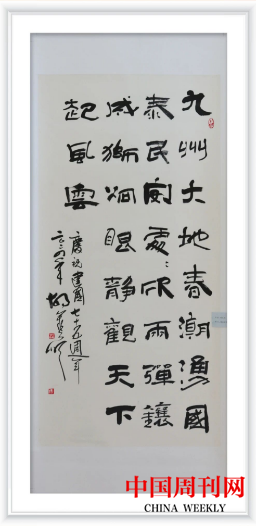 九州大地春潮湧國
泰民安處：欣兩彈鑲
威獅炯眼靜觀天下
起風雲
慶祝建國七十五週年
二〇二四年
中国周刊网
CHINA WEEKLY